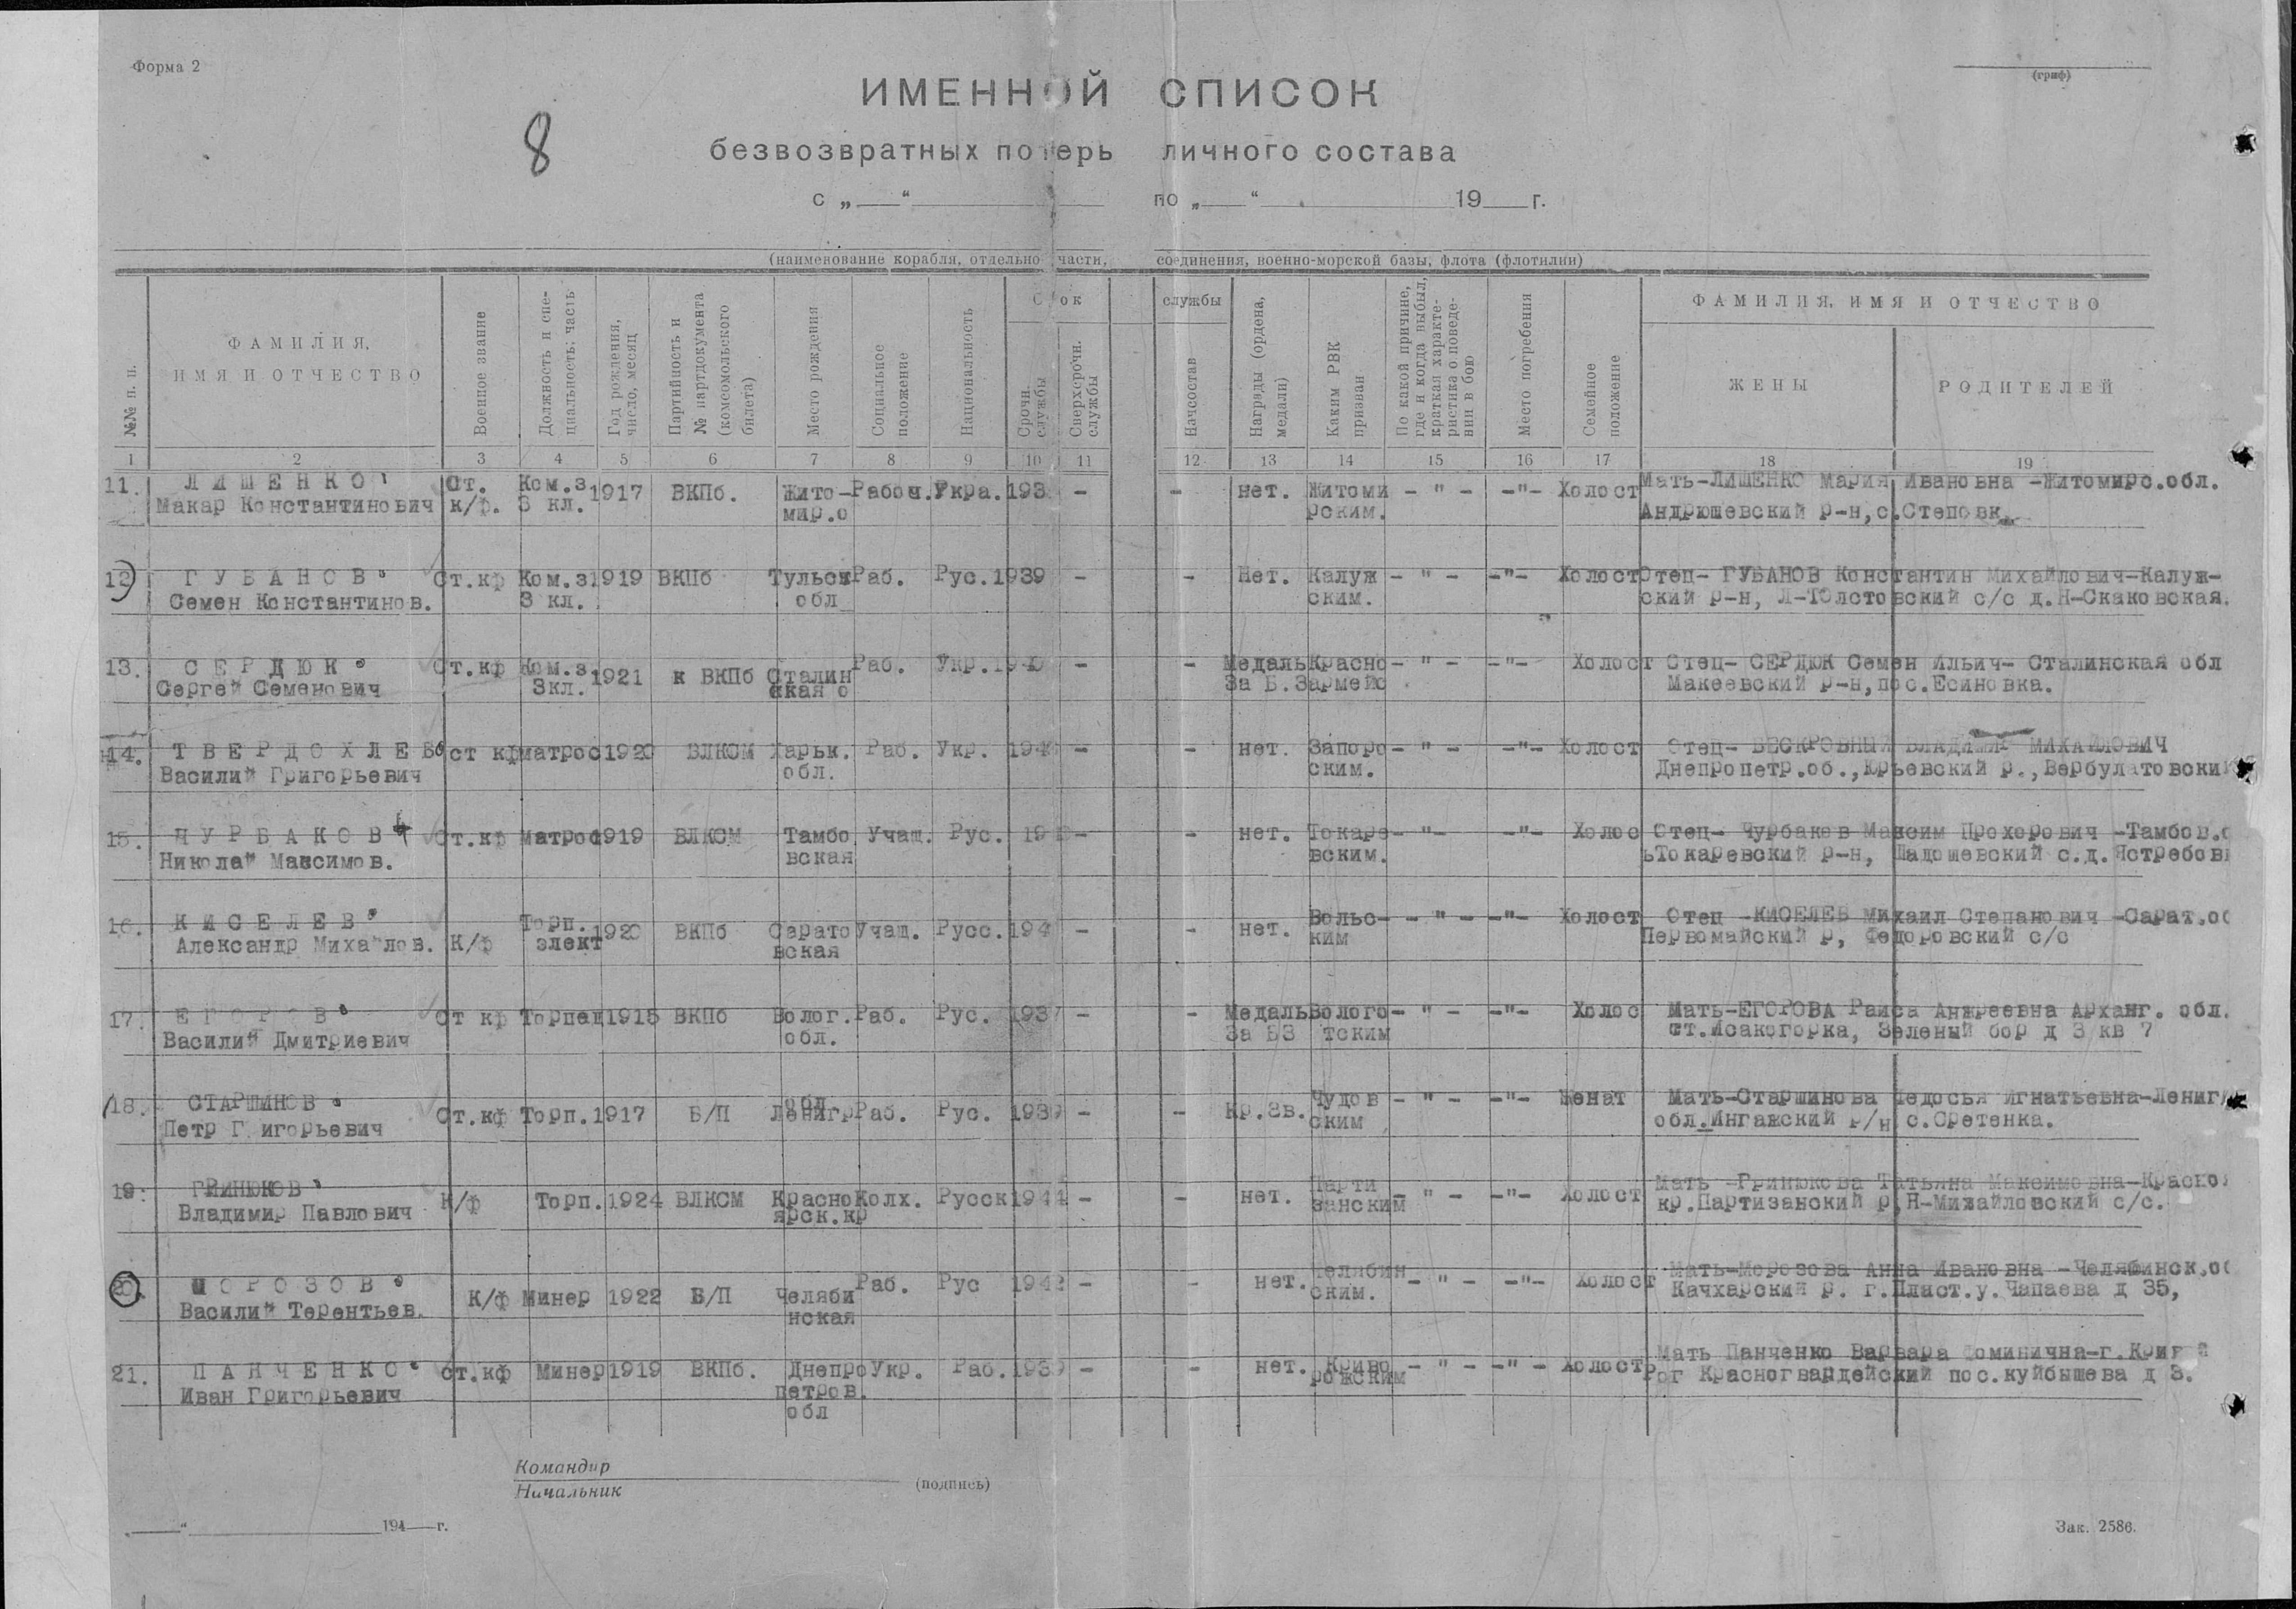 Форма 2
(гриф)
8
ИМЕННОЙ СПИСОК
безвозвратных потерь личного состава
с „ “ по „ “ 19 г.
(наименование корабля, отдельно части, соединения, военно-морской базы, флота (флотилии)
№№ п. п. ФАМИЛИЯ, ИМЯ И ОТЧЕСТВО Военное звание Должность и специальность; часть Год рождения, число, месяц Партийность и № партдокумента (комсомольского билета) Место рождения Социальное положение Национальность Срок службы Срочн. службы Сверхсрочн. службы Начсостав Награды (ордена, медали) Каким РВК призван По какой причине, где и когда выбыл, краткая характеристика о поведении в бою Место погребения Семейное положение ФАМИЛИЯ, ИМЯ И ОТЧЕСТВО ЖЕНЫ РОДИТЕЛЕЙ
1 2 3 4 5 6 7 8 9 10 11 12 13 14 15 16 17 18 19
11. ЛИШЕНКО Ст. Ком.з 1917 ВКПб. Жито- Рабоч. Укра. 193 - - нет. Житоми - " - -"- Холост Мать-ЛИШЕНКО Мария Ивановна -Житомирс.обл.
Макар Константинович к/ф. 3 кл. мир.о рским. Андрюшевский р-н,с.Степовк
12 ГУБАНОВ Ст.кф Ком.з 1919 ВКПб Тульск Раб. Рус. 1939 - - Нет. Калуж - " - -"- Холост Отец- ГУБАНОВ Константин Михайлович-Калуж-
Семен Константинов. 3 кл. обл ским. ский р-н, Л-Толстовский с/с д.Н-Скаковская.
13. СЕРДЮК Ст.кф Ком.з 1921 к ВКПб Сталин Раб. Укр. 1940 - - Медаль Красно - " - -"- Холост Отец- СЕРДЮК Семен Ильич- Сталинская обл
Сергей Семенович 3кл. ская о За Б.З армейс Макеевский р-н,пос.Есиновка.
14. ТВЕРДОХЛЕБ ст кф матрос 1920 ВЛКСМ Харьк. Раб. Укр. 194 - - нет. Запоро - " - -"- Холост Отец- БЕСКРОВНЫЙ ВЛАДИМИР МИХАЙЛОВИЧ
Василий Григорьевич обл. ским. Днепропетр.об.,Юрьевский р.,Вербулатовски
15. ЧУРБАКОВ Ст.кф матрос 1919 ВЛКСМ Тамбо Учащ. Рус. 19 - - нет. Токаре - "- -"- Холос Отец- Чурбаков Максим Прохорович -Тамбов.о
Николай Максимов. вская вским. ьТокаревский р-н, Шадошевский с.д.Ястребов
16. КИСЕЛЕВ К/ф Торп. 1920 ВКПб Сарато Учащ. Русс. 194 - - нет. Вольс- - " - -"- Холост Отец -КИСЕЛЕВ Михаил Степанович -Сарат.об
Александр Михайлов. элект вская ким Первомайский р, Федоровский с/с
17. ЕГОРОВ Ст кф Торпед 1915 ВКПб Волог. Раб. Рус. 1937 - - Медаль Волого - " - -"- Холос Мать-ЕГОРОВА Раиса Андреевна Арханг. обл.
Василий Дмитриевич обл. За БЗ тским ст.Исакогорка, Зеленый бор д 3 кв 7
18. СТАРШИНОВ Ст.кф Торп. 1917 Б/П обл Ленигр Раб. Рус. 1939 - - Кр.Зв. Чудов - " - -"- Женат Мать-Старшинова Федосья Игнатьевна-Лениг
Петр Григорьевич ским обл.Ингажский р/н с.Сретенка.
19. ГРИНЮКОВ К/ф Торп. 1924 ВЛКСМ Красно Колх. Русск 1944 - - нет. Парти - " - -"- Холост Мать -Гринюкова Татьяна Максимовна-Красно
Владимир Павлович ярск.кр занским кр.Партизанский р,Н-Михайловский с/с.
20. МОРОЗОВ К/ф Минер 1922 Б/П Челяби Раб. Рус 1942 - - нет. Челябин - " - -"- Холост Мать-Морозова Анна Ивановна -Челябинск.об
Василий Терентьев. нская ским. Качхарский р. г.Пласт.у.Чапаева д 35,
21. ПАНЧЕНКО ст.кф Минер 1919 ВКПб. Днепро Укр. Раб. 1939 - - нет. Криво - " - -"- Холост Мать Панченко Варвара Фоминична-г.Кривй
Иван Григорьевич петров. рожским Рог Красногвардейский пос.куйбышева д 3.
обл
Командир
Начальник
(подпись)
„ “ 194 г.
Зак. 2586.